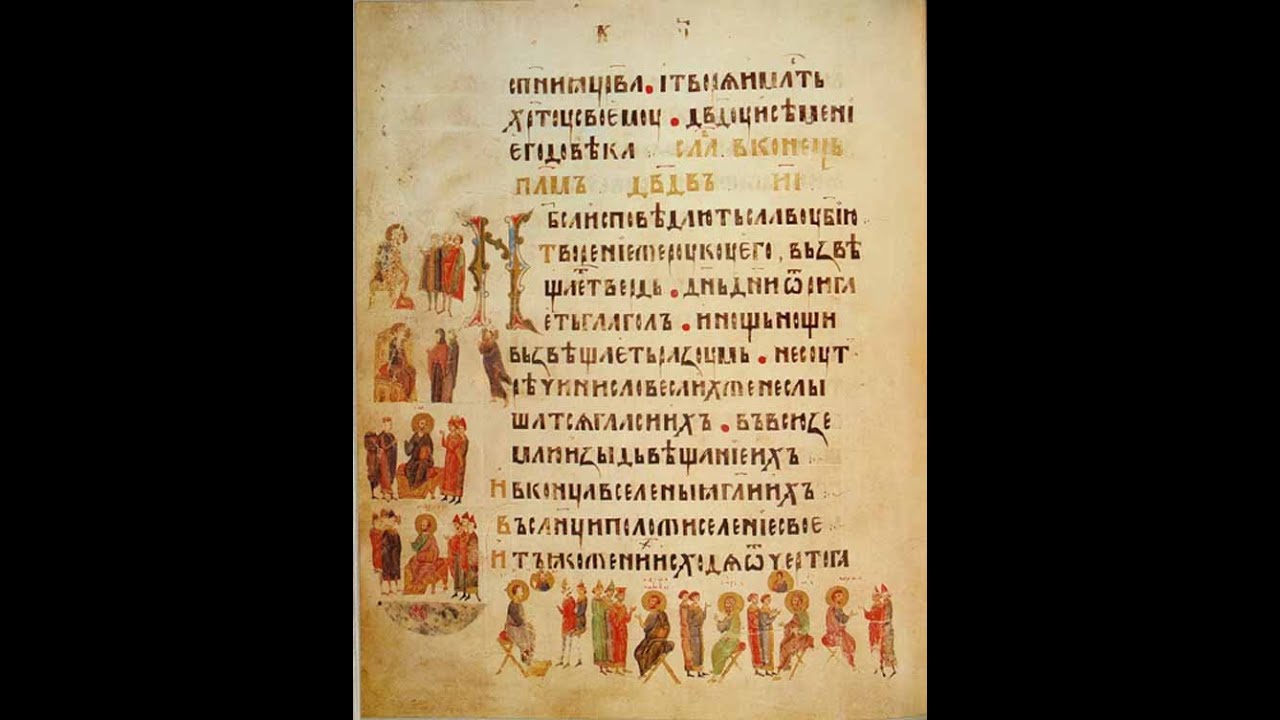 К Ѕ
сп҃нииꙗ цр҃ѣвꙗ . і творѧи ми҃лть
хр҃тоу своемоу . дв҃доу и сѣмени
его до вѣка сла҃ в конець
пл҃мъ дв҃двъ и҃і
Нб҃са исповѣдають славоу б҃ию
творение же роукоу его , възвѣ
щает҃ твердь . дн҃ь дн҃и ѿрига
еть глаголъ . и нощь нощи
възвѣщаеть разоумь . не соут
рѣчи ни словеса ихже не слы
шатсѧ гласи ихъ . въ всю зе
млю изыдь вѣщание ихъ
и в конца вселеныꙗ гл҃и ихъ
въ сл҃нци положи селение свое
и тъ ꙗко жених исходѧ ѿ чертога